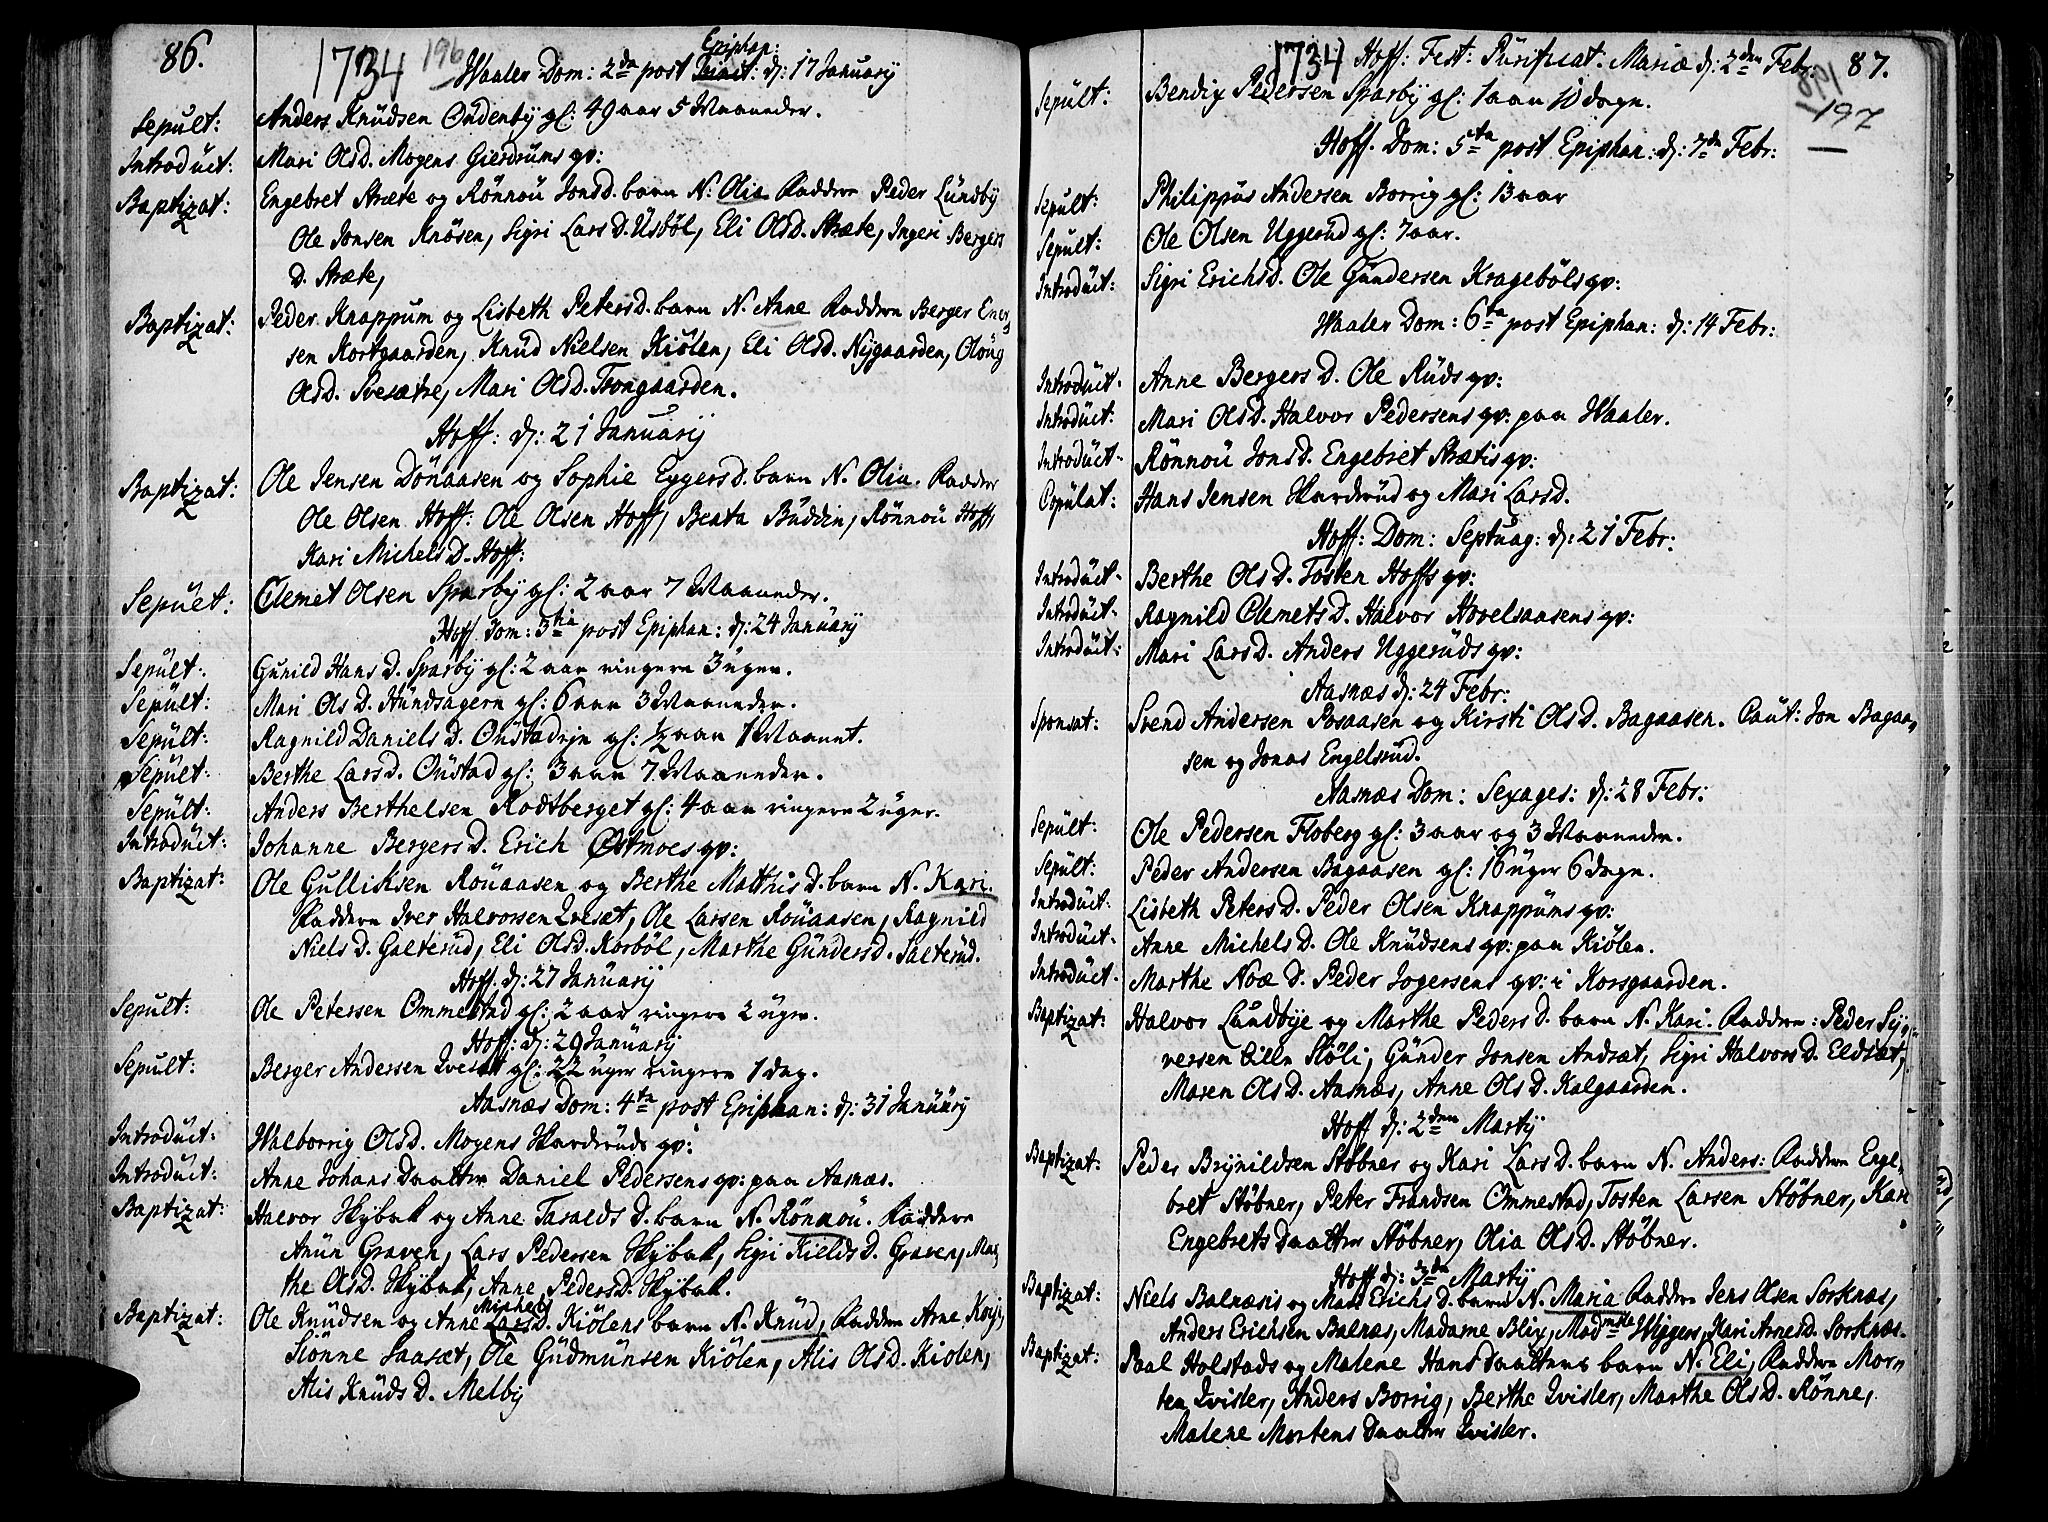 86.
1734 196 Waaler Dom: 2da post Epiphan: Trinit: d: 17 Januarij
Sepult: Anders Knüdsen Ondenby gl: 49 aar 5 Maaneder.
Introduct: Mari Olsd. Mogens Gierdrums qv:
Baptizat: Engebret Stræte og Rönnou Jonsd. barn N: Olia Faddere Peder Lundby
Ole Jonsen Knösen, Sigri Larsd. Usböl, Eli Olsd. Stræte, Ingeri Bergers
D. Stræte,
Baptizat: Peder Knappum og Lisbeth Petersd. barn N. Anne Faddere Berger Ener
sen Kortgaarden, Knud Nielsen Kiölen, Eli Olsd. Nygaarden, Oloug
Olsd. Svesætre, Mari Olsd. Trongaarden.
Hoff: d: 21 Januarij
Baptizat: Ole Jensen Dönaasen og Sophie Eggersd. barn N. Olia. Faddere
Ole Olsen Hoff: Ole Olsen Hoff, Beata Buddin, Rönnou Hoff,
Kari Michelsd. Hoff:
Sepult: Clemet Olsen Sparby gl: 2 aar 7 Maaneder.
Hoff Dom: 3tia post Epiphan: d: 24 Januarij
Sepult: Gunild Hansd. Sparby gl: 2 aar ringere 3 uger.
Sepult: Mari Olsd. Hundsagern gl: 6 aar 3 Maaneder.
Sepult: Ragnild Danielsd. Onstadeje gl: ½ aar 1 Maanet.
Sepult: Berthe Larsd. Onstad gl: 3 aar 7 Maaneder.
Sepult: Anders Berthelsen Rodtberget gl: 4 aar ringere 2 uger.
Introduct: Johanne Bergersd. Erich Østmoes qv:
Baptizat: Ole Gulliksen Rouaasen og Berthe Matthisd. barn N. Kari.
Faddere Iver Halvorsen Qvesæt, Ole Larsen Rouaasen, Ragnild
Nielsd. Galterud, Eli Olsd. Korböl, Marthe Gundersd. Salterud.
Hoff: d: 27 Januarij
Sepult: Ole Petersen Ommestad gl: 2 aar ringere 2 uger.
Hoff: d: 29 Januarij
Sepult: Berger Andersen Qvesæt gl: 22 uger ringere 1 dag.
Aasnæs Dom: 4ta post Epiphan: d: 31 Januarij
Introduct: Walborrig Olsd. Mogens Skarderuds qv:
Introduct: Anne Johans Daatter Daniel Pedersens qv: paa Aasnæs.
Baptizat: Halvor Skybak og Anne Taraldsd. barn N. Rönnou. Faddere
Amün Graven, Lars Pedersen Skybak, Sigri Kieldsd. Graven, Mar
the Olsd. Skybak, Anne Pedersd. Skybak.
Baptizat: Ole Knudsen og Anne Michels Larsd. Kiölens barn N. Knud, Faddere Arne
Slönne Saasæt, Ole Gudmunsen Kiölen, Alis Olsd. Kiölen,
Alis Knudsd. Melby
1734 Hoff: Fest: Purificat. Mariæ d: 2den Febr: 87.
197
Sepult: Bendix Pedersen Sparby gl: 1 aar 10 dage.
Hoff. Dom: 5ta post Epiphan: d: 7da Febr:
Sepult: Philippus Andersen Borrig gl: 13 aar
Sepult: Ole Olsen Uggerud gl: 7 aar.
Introduct: Sigri Erichsd. Ole Gundersen Kragebölsqv:
Waaler Dom: 6ta post Epiphan: d: 14 Febr:
Introduct. Anne Bergersd. Ole Ruds qv:
Introduct: Mari Olsd. Halvor Pedersens qv: paa Waaler.
Introduct- Rönnou Jonsd. Engebret Strætis qv:
Copulat: Hans Jensen Skarderud og Mari Larsd.
Hoff: Dom: Septuag: d: 21 Febr:
Introduct- Berthe Olsd. Tosten Hoffs qv:
Introduct- Ragnild Clemetsd. Halvor Hovelsaasens qv:
Introduct: Mari Larsd. Anders Uggeruds qv:
Aasnæs d: 24 Febr:
Sponsat: Svend Andersen Posaasen og Kirsti Olsd. Bagaasen. Caut: Jon Bagaa
sen og Jonas Engelsrud.
Aasnæs Dom: Sexages: d: 28 Febr:
Sepult: Ole Pedersen Floberg gl: 3 aar og 3 Maaneder.
Sepult: Peder Andersen Bagaasen gl: 16 uger 6 dage.
Introduct. Lisbeth Petersd. Peder Olsen Knappums qv:
Introduct- Anne Michelsd. Ole Knudsens qv: paa Kiölen.
Introduct- Marthe Noæ D. Peder Jogersens qv: i Korsgaarden.
Baptizat: Halvor Lundbye og Marthe Pedersd. barn N. Kari. Faddere: Peder Sy
versen Stöli, Gunder Jonsen Andsæt, Sigri Halvorsd. Eldsæt,
Maren Olsd. Aasnæs, Anne Olsd. Kalgaarden.
Hoff d: 2den Martij
Baptizat: Peder Brynildsen Stöbner og Kari Larsd. barn N. Anders: Faddere Enge
bret Stöbner, Peter Frandsen Ommestad, Tosten Larsen Stöbner, Kari
Engebrets Daatter Stöbner, Olia Olsd. Stöbner.
Hoff d: 3de Martij
Baptizat: Niels Balnæsis og Mari Erichsd. barn N. Maria Faddere Jens Olsen Sorknæs,
Anders Erichsen Balnæs, Madame Blix, Madmslle Wiggers, Kari Arnesd. Sorknæs.
Baptizat: Paal Holstads og Malene Hansdaatters barn N. Eli, Faddere Mor
ten Qvisler, Anders Borrig, Berthe Qvisler, Marthe Olsd. Rönne,
Malene Mortens Daatter Qvisler.